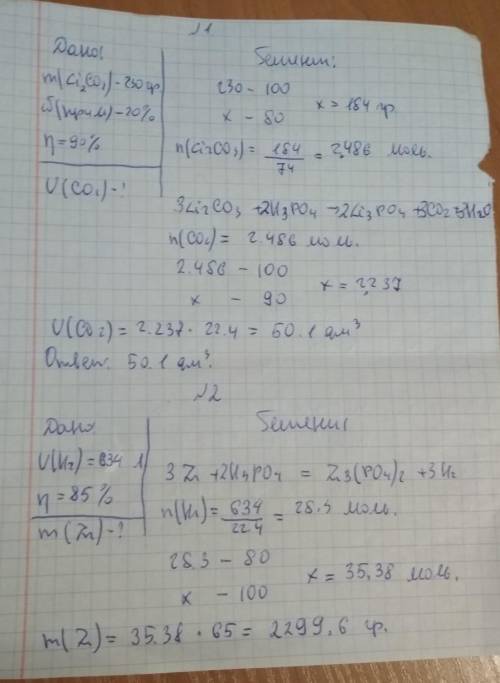 №1
Дано:
m(Li2CO3)-230 гр.
ω(прим)-20%
η=90%
V(CO2)-?
Решение:
230 - 100
x - 80
x = 184 гр.
n(Li2CO3) = 184/74 = 2,486 моль.
3Li2CO3 + 2H3PO4 → 2Li3PO4 + 3CO2 + 3H2O
n(CO2) = 2.486 моль.
2.486 - 100
x - 90
x = 2,237
V(CO2) = 2.237 · 22.4 = 50.1 дм³
Ответ: 50.1 дм³.
№2
Дано:
V(H2) = 634 л
η = 85%
m(Zn)-?
Решение:
3Zn + 2H3PO4 = Zn3(PO4)2 + 3H2
n(H2) = 634/22.4 = 28.3 моль.
28.3 - 80
x - 100
x = 35,38 моль.
m(Z) = 35.38 · 65 = 2299,6 гр.